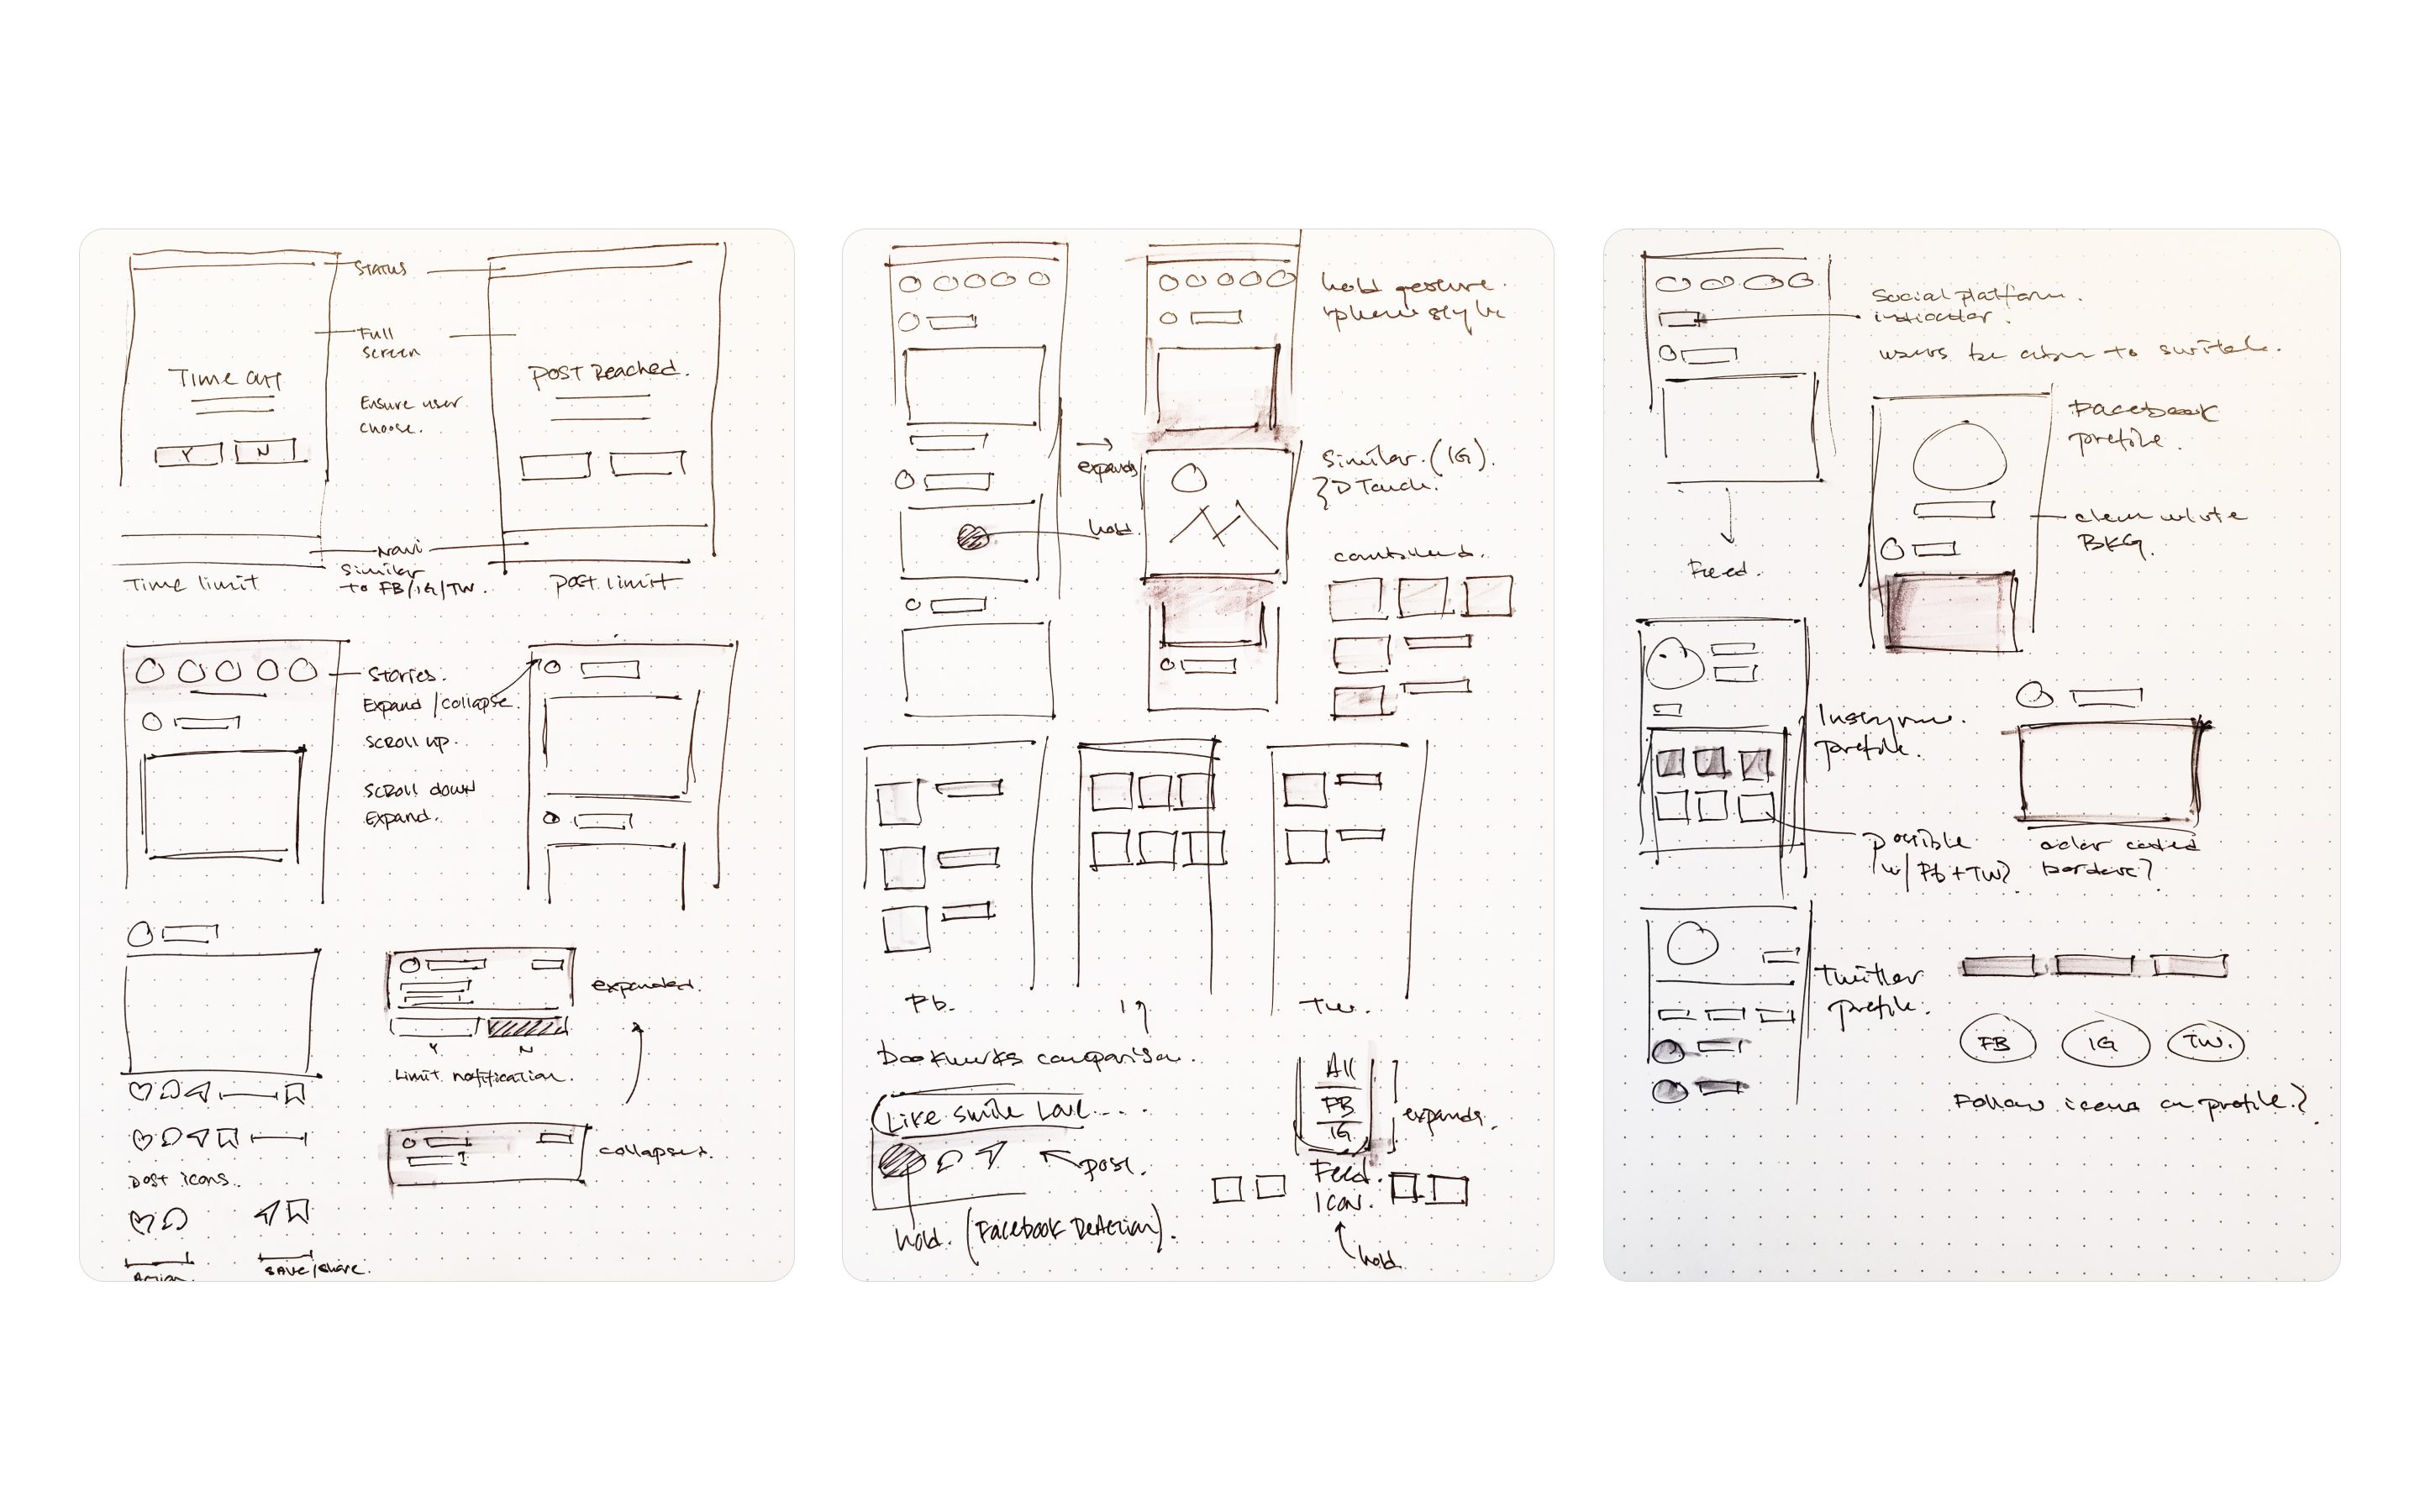 STATUS
Full
screen
Time out
POST Reached.
Ensure user
choose.
Y N
Navi
Similar
to FB/IG/TW.
Time limit
post limit
Stories.
Expand/collapse.
SCROLL UP.
SCROLL down
Expand.
expanded.
Y N
Limit notification.
collapsed.
post icons.
SAVE/share.
hold gesture.
expands
Similar (IG).
3D Touch.
hold.
combined.
Fb.
Ig
Tw.
Bookmarks comparison.
Like Smile Love....
post.
hold. (Facebook Reaction).
All
FB
IG
expands.
Feed.
Icon.
hold
Social platform.
indicator.
users be able to switch.
Feed.
Facebook
profile.
clean white
BKG.
Instagram.
profile.
possible
w/ Fb + TW?
color coded
borders?
Twitter
profile.
FB IG TW.
Follow icons on profile.?